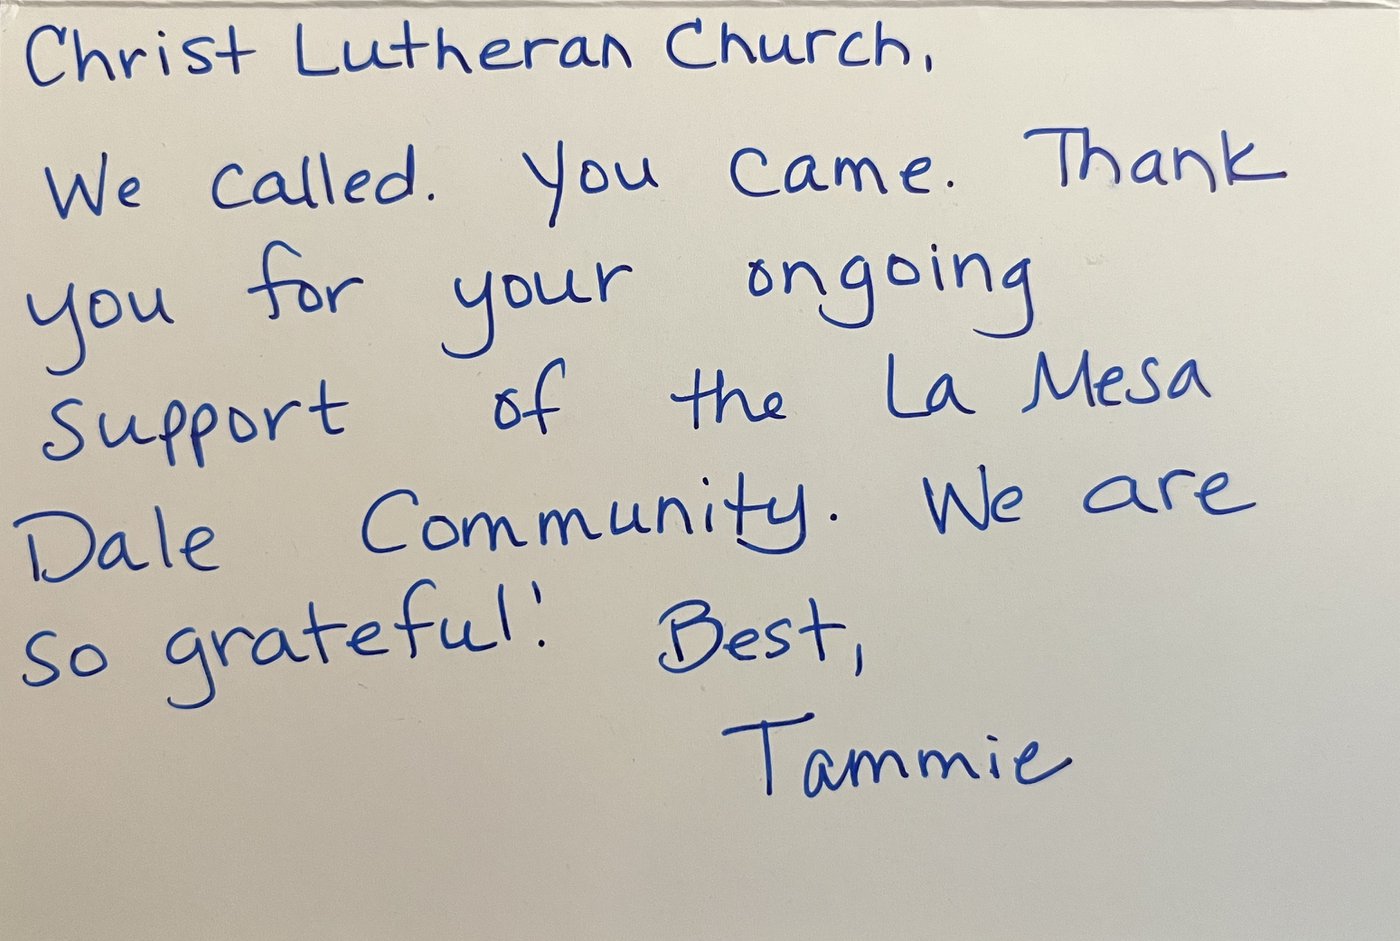 Christ Lutheran Church,
We called. You came. Thank
you for your ongoing
support of the La Mesa
Dale Community. We are
so grateful! Best,
Tammie